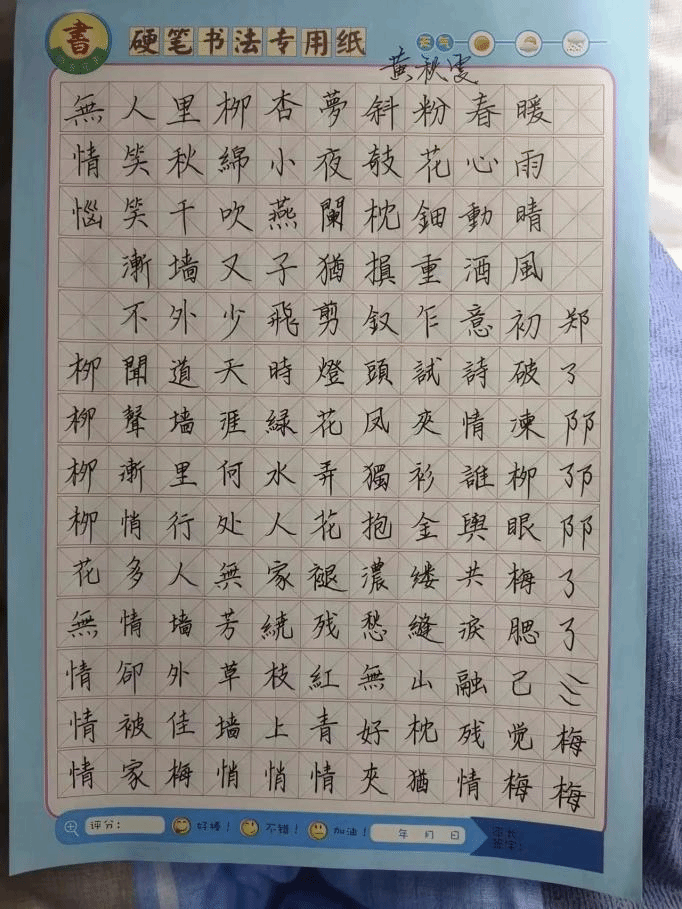 書
硬笔书法专用纸
天气
黄秋雯
郑了阝阝了阝阝阝了了梅梅
暖雨晴風初破凍柳眼梅腮已觉梅
春心動酒意詩情誰與共淚融残情
粉花鈿重乍試夾衫金縷縫山枕猶
斜敧枕損釵頭凤獨抱濃愁無好夾
夢夜闌猶剪燈花弄花褪残紅青情
杏小燕子飛時緑水人家繞枝上悄
柳綿吹又少天涯何处無芳草墙悄
里秋千墙外道墙里行人墙外佳梅
人笑笑漸不聞聲漸悄多情卻被家
無情惱柳柳柳柳花無情情情
评分：
好棒！
不错！
加油！
年 月 日
家长
签字：